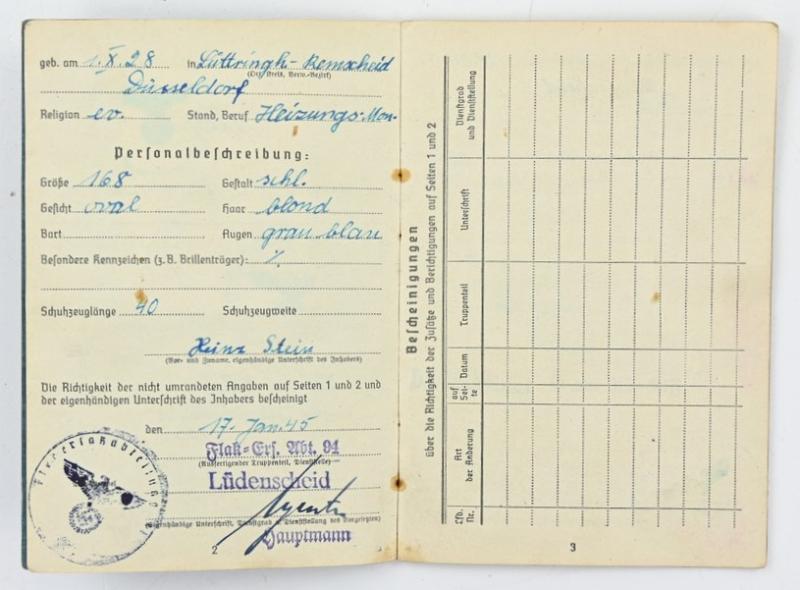 geb. am 1.X.28 in Lüttringh.-Remscheid
(Ort, Kreis, Verw.-Bezirk)
Düsseldorf
Religion ev. Stand, Beruf Heizungs-Mon-
Personalbeschreibung:
Größe 168 Gestalt schl.
Gesicht oval Haar blond
Bart Augen grau blau
Besondere Kennzeichen (z. B. Brillenträger): ·/.
Schuhzeuglänge 40 Schuhzeugweite
Heinz Stein
(Vor- und Zuname, eigenhändige Unterschrift des Inhabers)
Die Richtigkeit der nicht umrandeten Angaben auf Seiten 1 und 2 und
der eigenhändigen Unterschrift des Inhabers bescheinigt
den 17. Jan. 45
Flak-Ers. Abt. 94
(Ausfertigender Truppenteil, Dienststelle)
Lüdenscheid
(Eigenhändige Unterschrift, Dienstgrad u. Dienststellung des Vorgesetzten)
Hauptmann
2
Bescheinigungen
über die Richtigkeit der Zusätze und Berichtigungen auf Seiten 1 und 2
Lfd. Nr.
Art der Änderung
auf Seite
Datum
Truppenteil
Unterschrift
Dienstgrad und Dienststellung
3